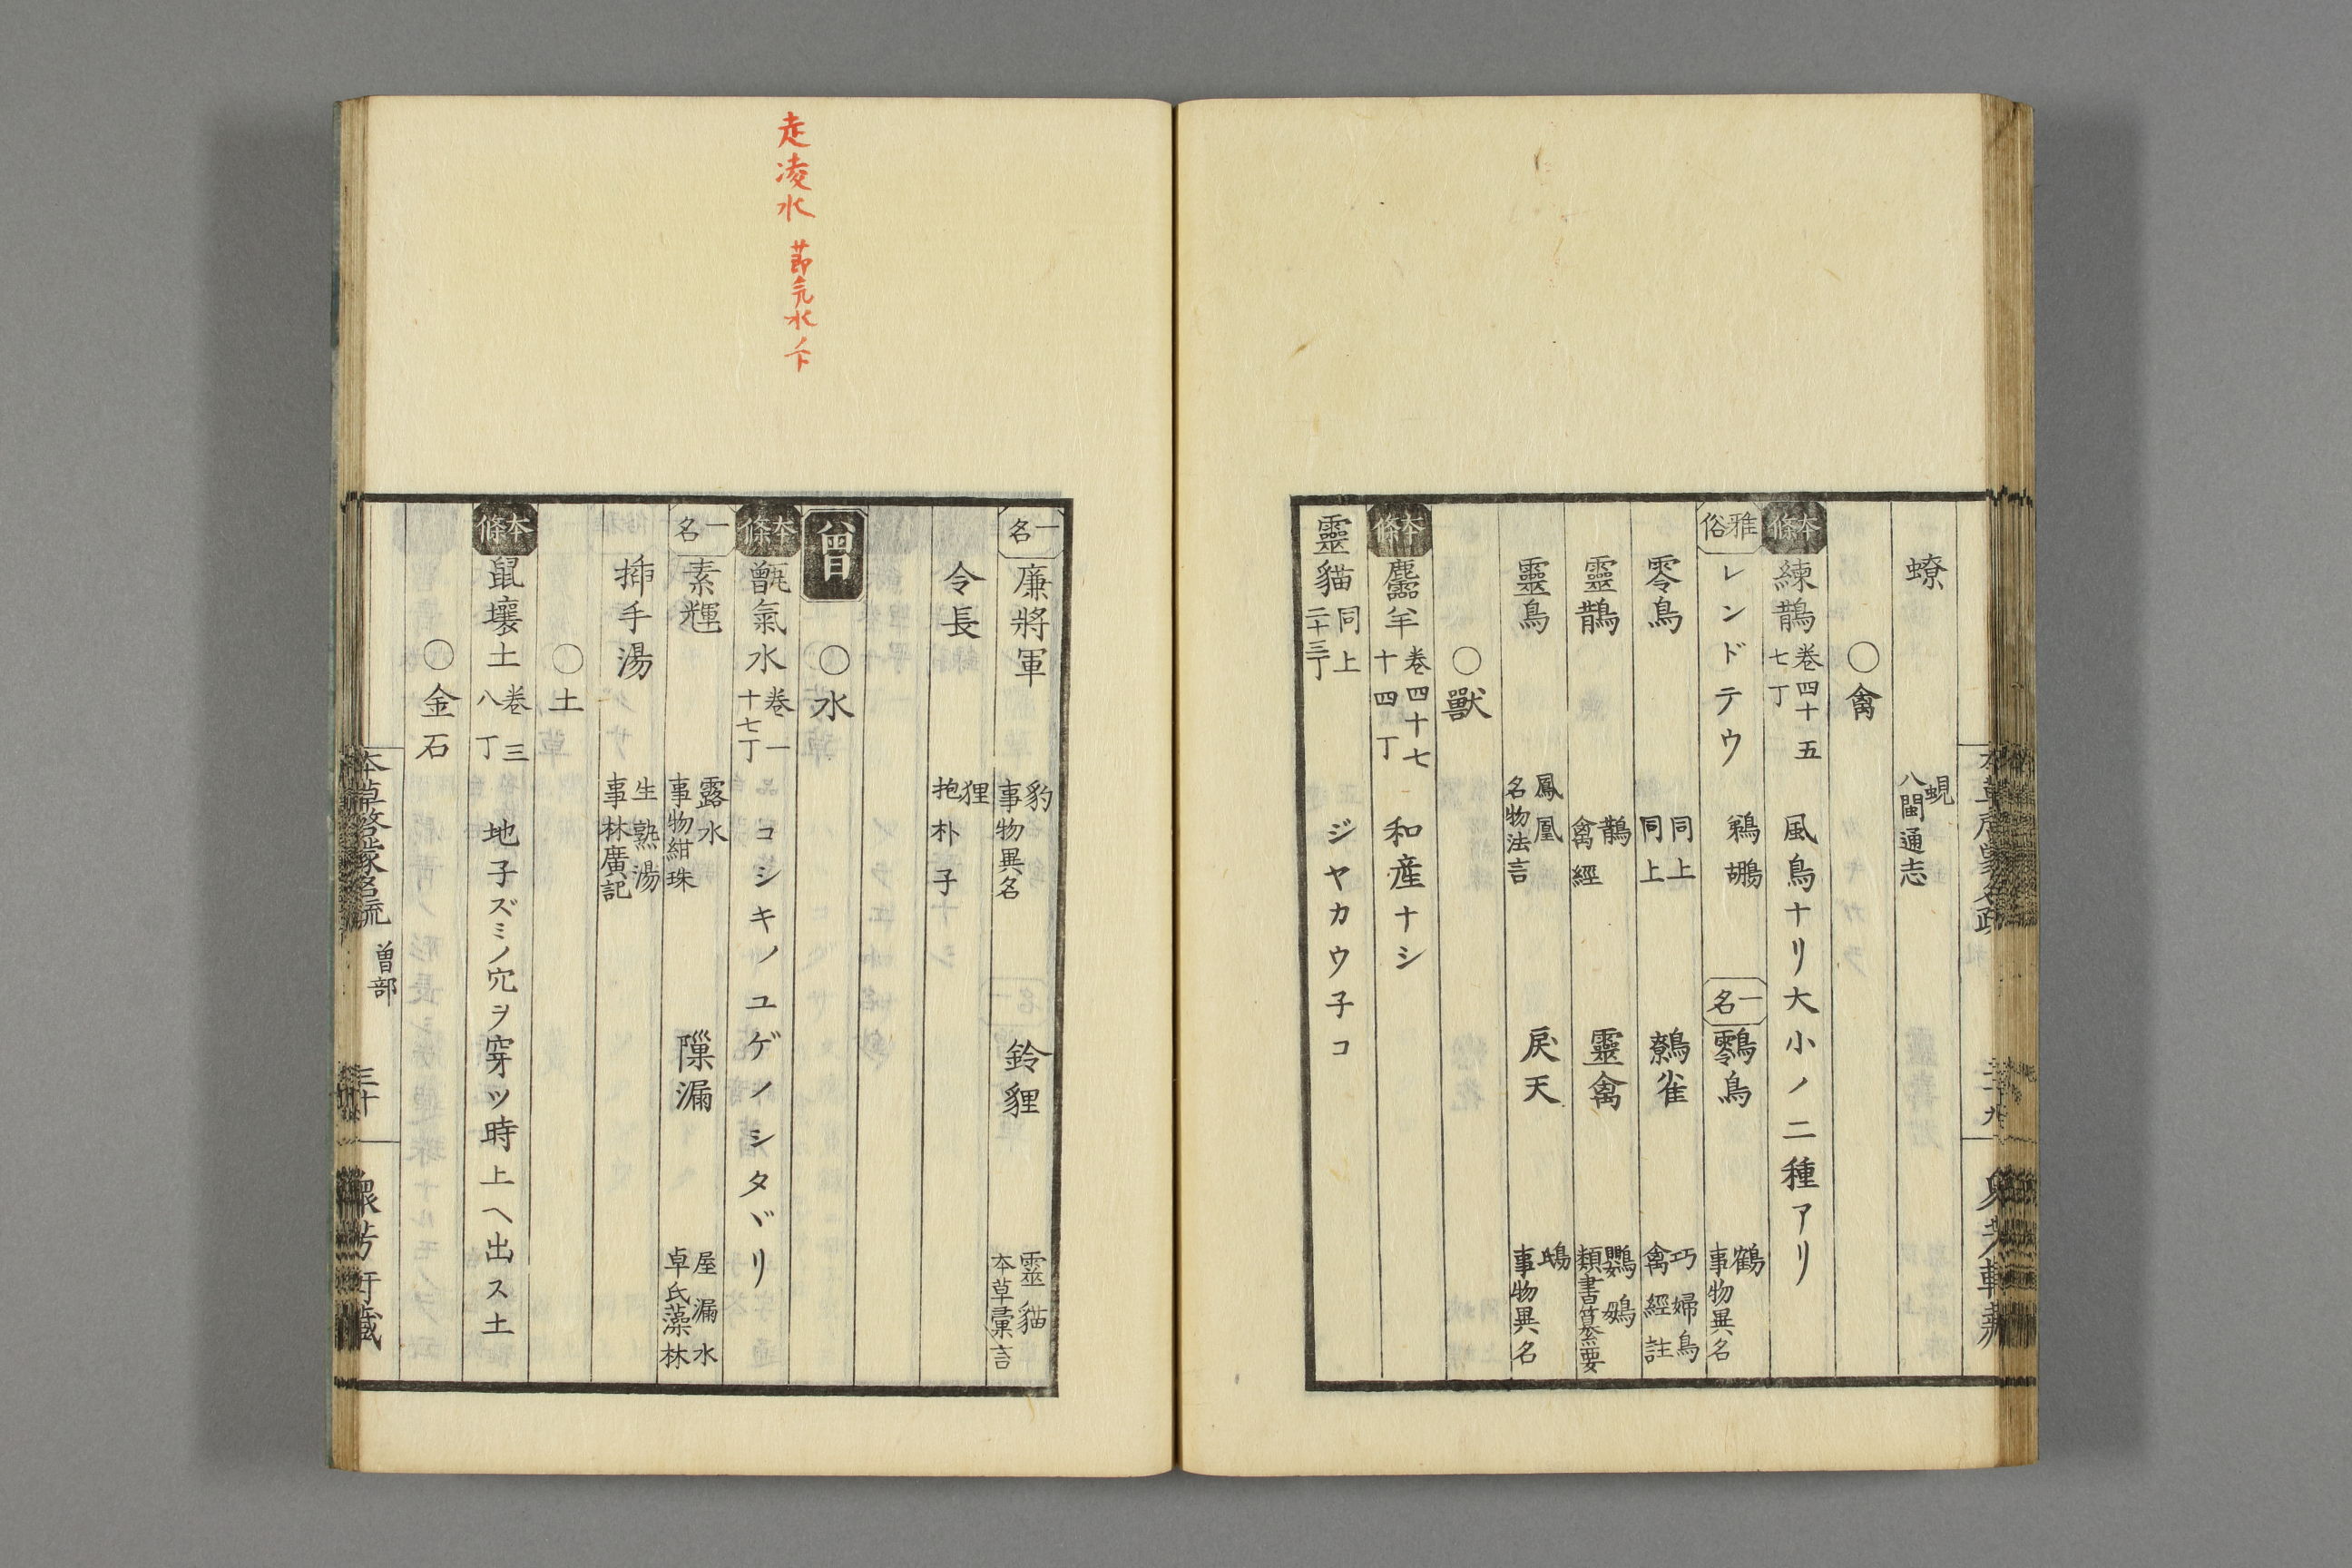 蟟　蜆 八閩通志
○禽
本條 練鵲 卷四十五 七丁　風鳥ナリ大小ノ二種アリ
雅俗 レンドテウ　鵜鶘　一名 鸖鳥　鶴 事物異名
零鳥　同上 同上　鷯雀　巧婦鳥 禽經註
靈鵲　鵲 禽經　靈禽　鸚鵡 類書纂要
靈鳥　鳳凰 名物法言　戾天　鴟 事物異名
○獸
本條 麢羊 卷四十七 十四丁　和産ナシ
靈貓 同上 二十三丁　ジヤカウ子コ
走凌水 節氣水ノ下
一名 廉將軍　豹 事物異名　鈴貍　靈貓 本草彙言
令長　狸 抱朴子
曾
○水
本條 甑氣水 卷一 十七丁　コシキノユゲノシタヾリ
一名 素輝　露水 事物紺珠　屋漏水 卓氏藻林
㨪手湯　生熟湯 事林廣記
○土
本條 鼠壤土 卷三 八丁　地子ズミノ穴ヲ穿ツ時上ヘ出ス土
○金石
本草啓蒙名疏　曽部　三十